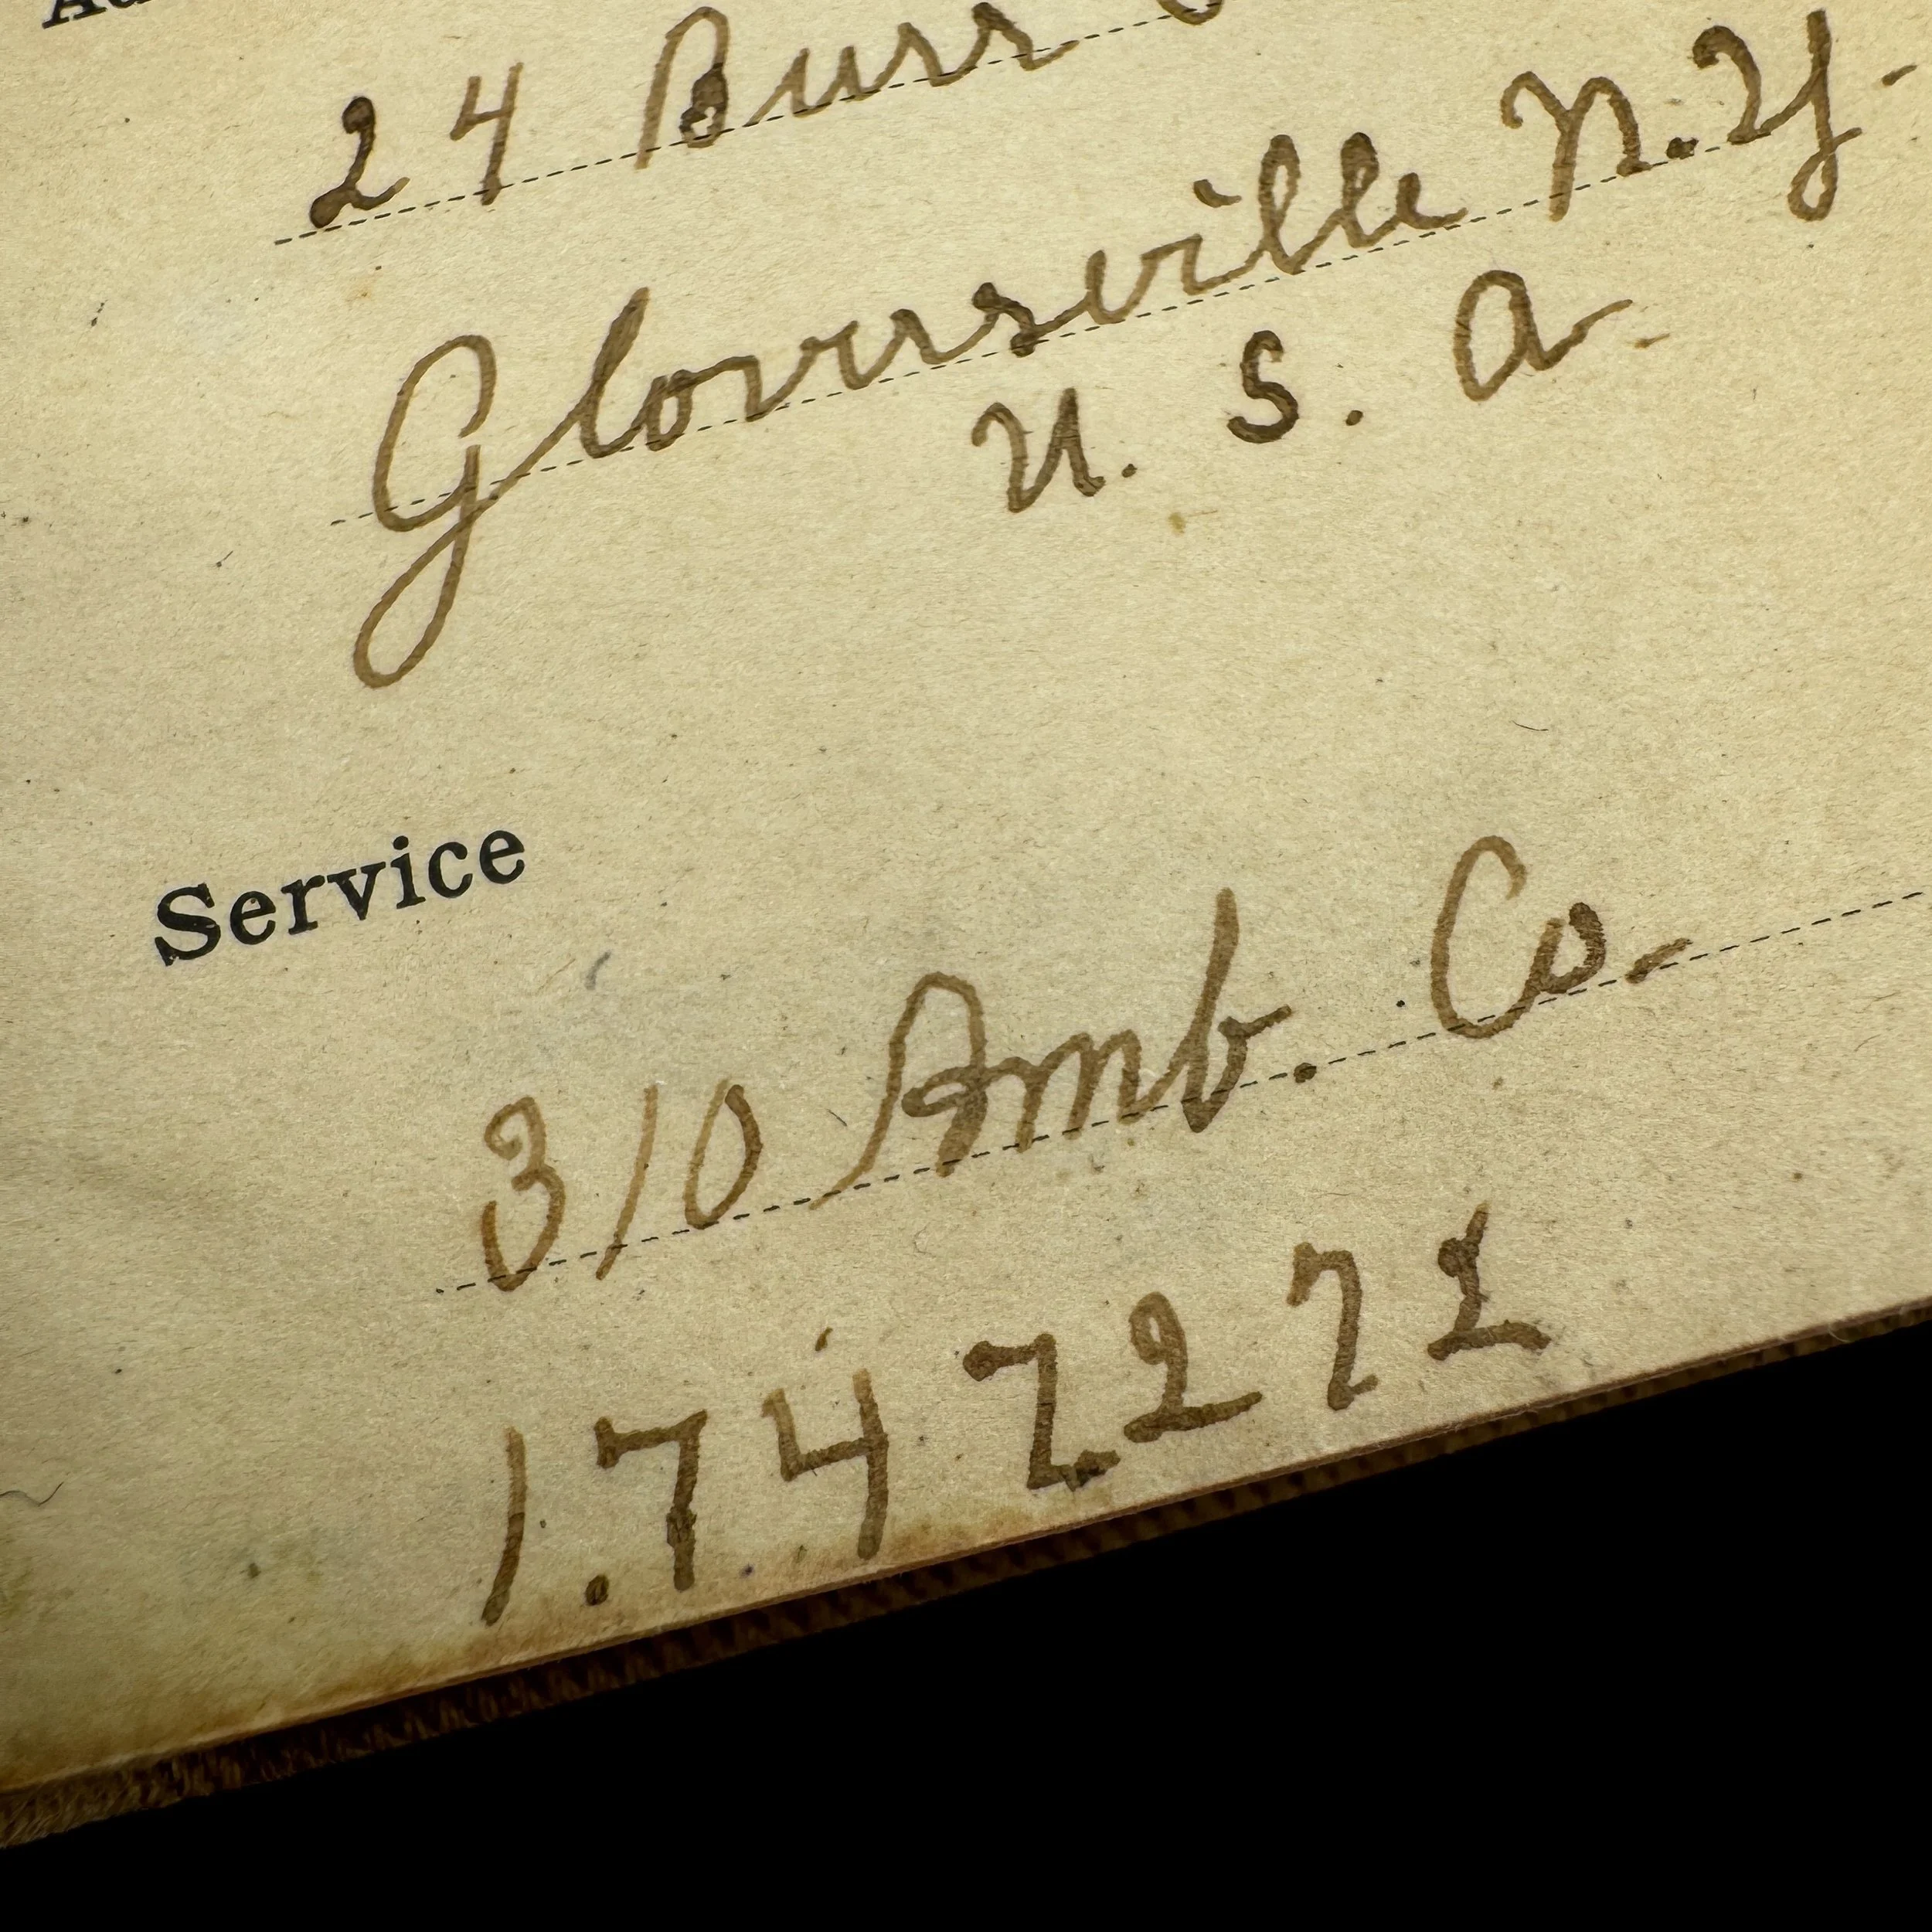 24 Burr
Gloversville N.Y.
U. S. A.
Service
310 Amb. Co.
1.747271